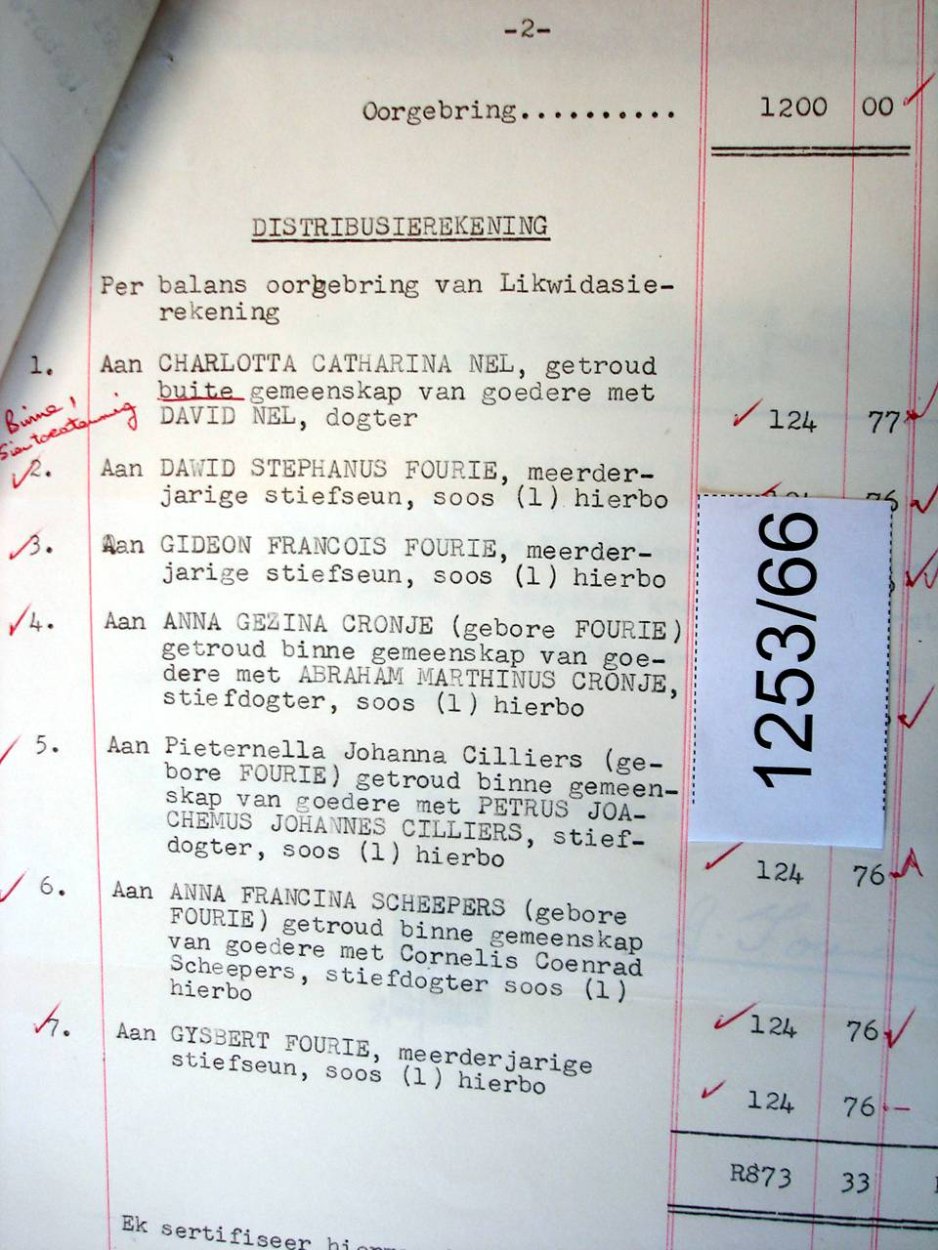 -2-
Oorgebring.......... 1200 00
DISTRIBUSIEREKENING
Per balans oorgebring van Likwidasie-
rekening
1. Aan CHARLOTTA CATHARINA NEL, getroud
buite gemeenskap van goedere met
DAVID NEL, dogter 124 77
Binne,
2. Aan DAWID STEPHANUS FOURIE, meerder-
jarige stiefseun, soos (1) hierbo
3. Aan GIDEON FRANCOIS FOURIE, meerder-
jarige stiefseun, soos (1) hierbo
4. Aan ANNA GEZINA CRONJE (gebore FOURIE)
getroud binne gemeenskap van goe-
dere met ABRAHAM MARTHINUS CRONJE,
stiefdogter, soos (1) hierbo
1253/66
5. Aan Pieternella Johanna Cilliers (ge-
bore FOURIE) getroud binne gemeen-
skap van goedere met PETRUS JOA-
CHEMUS JOHANNES CILLIERS, stief-
dogter, soos (1) hierbo 124 76
6. Aan ANNA FRANCINA SCHEEPERS (gebore
FOURIE) getroud binne gemeenskap
van goedere met Cornelis Coenrad
Scheepers, stiefdogter soos (1)
hierbo 124 76
7. Aan GYSBERT FOURIE, meerderjarige
stiefseun, soos (1) hierbo 124 76
R873 33
Ek sertifiseer